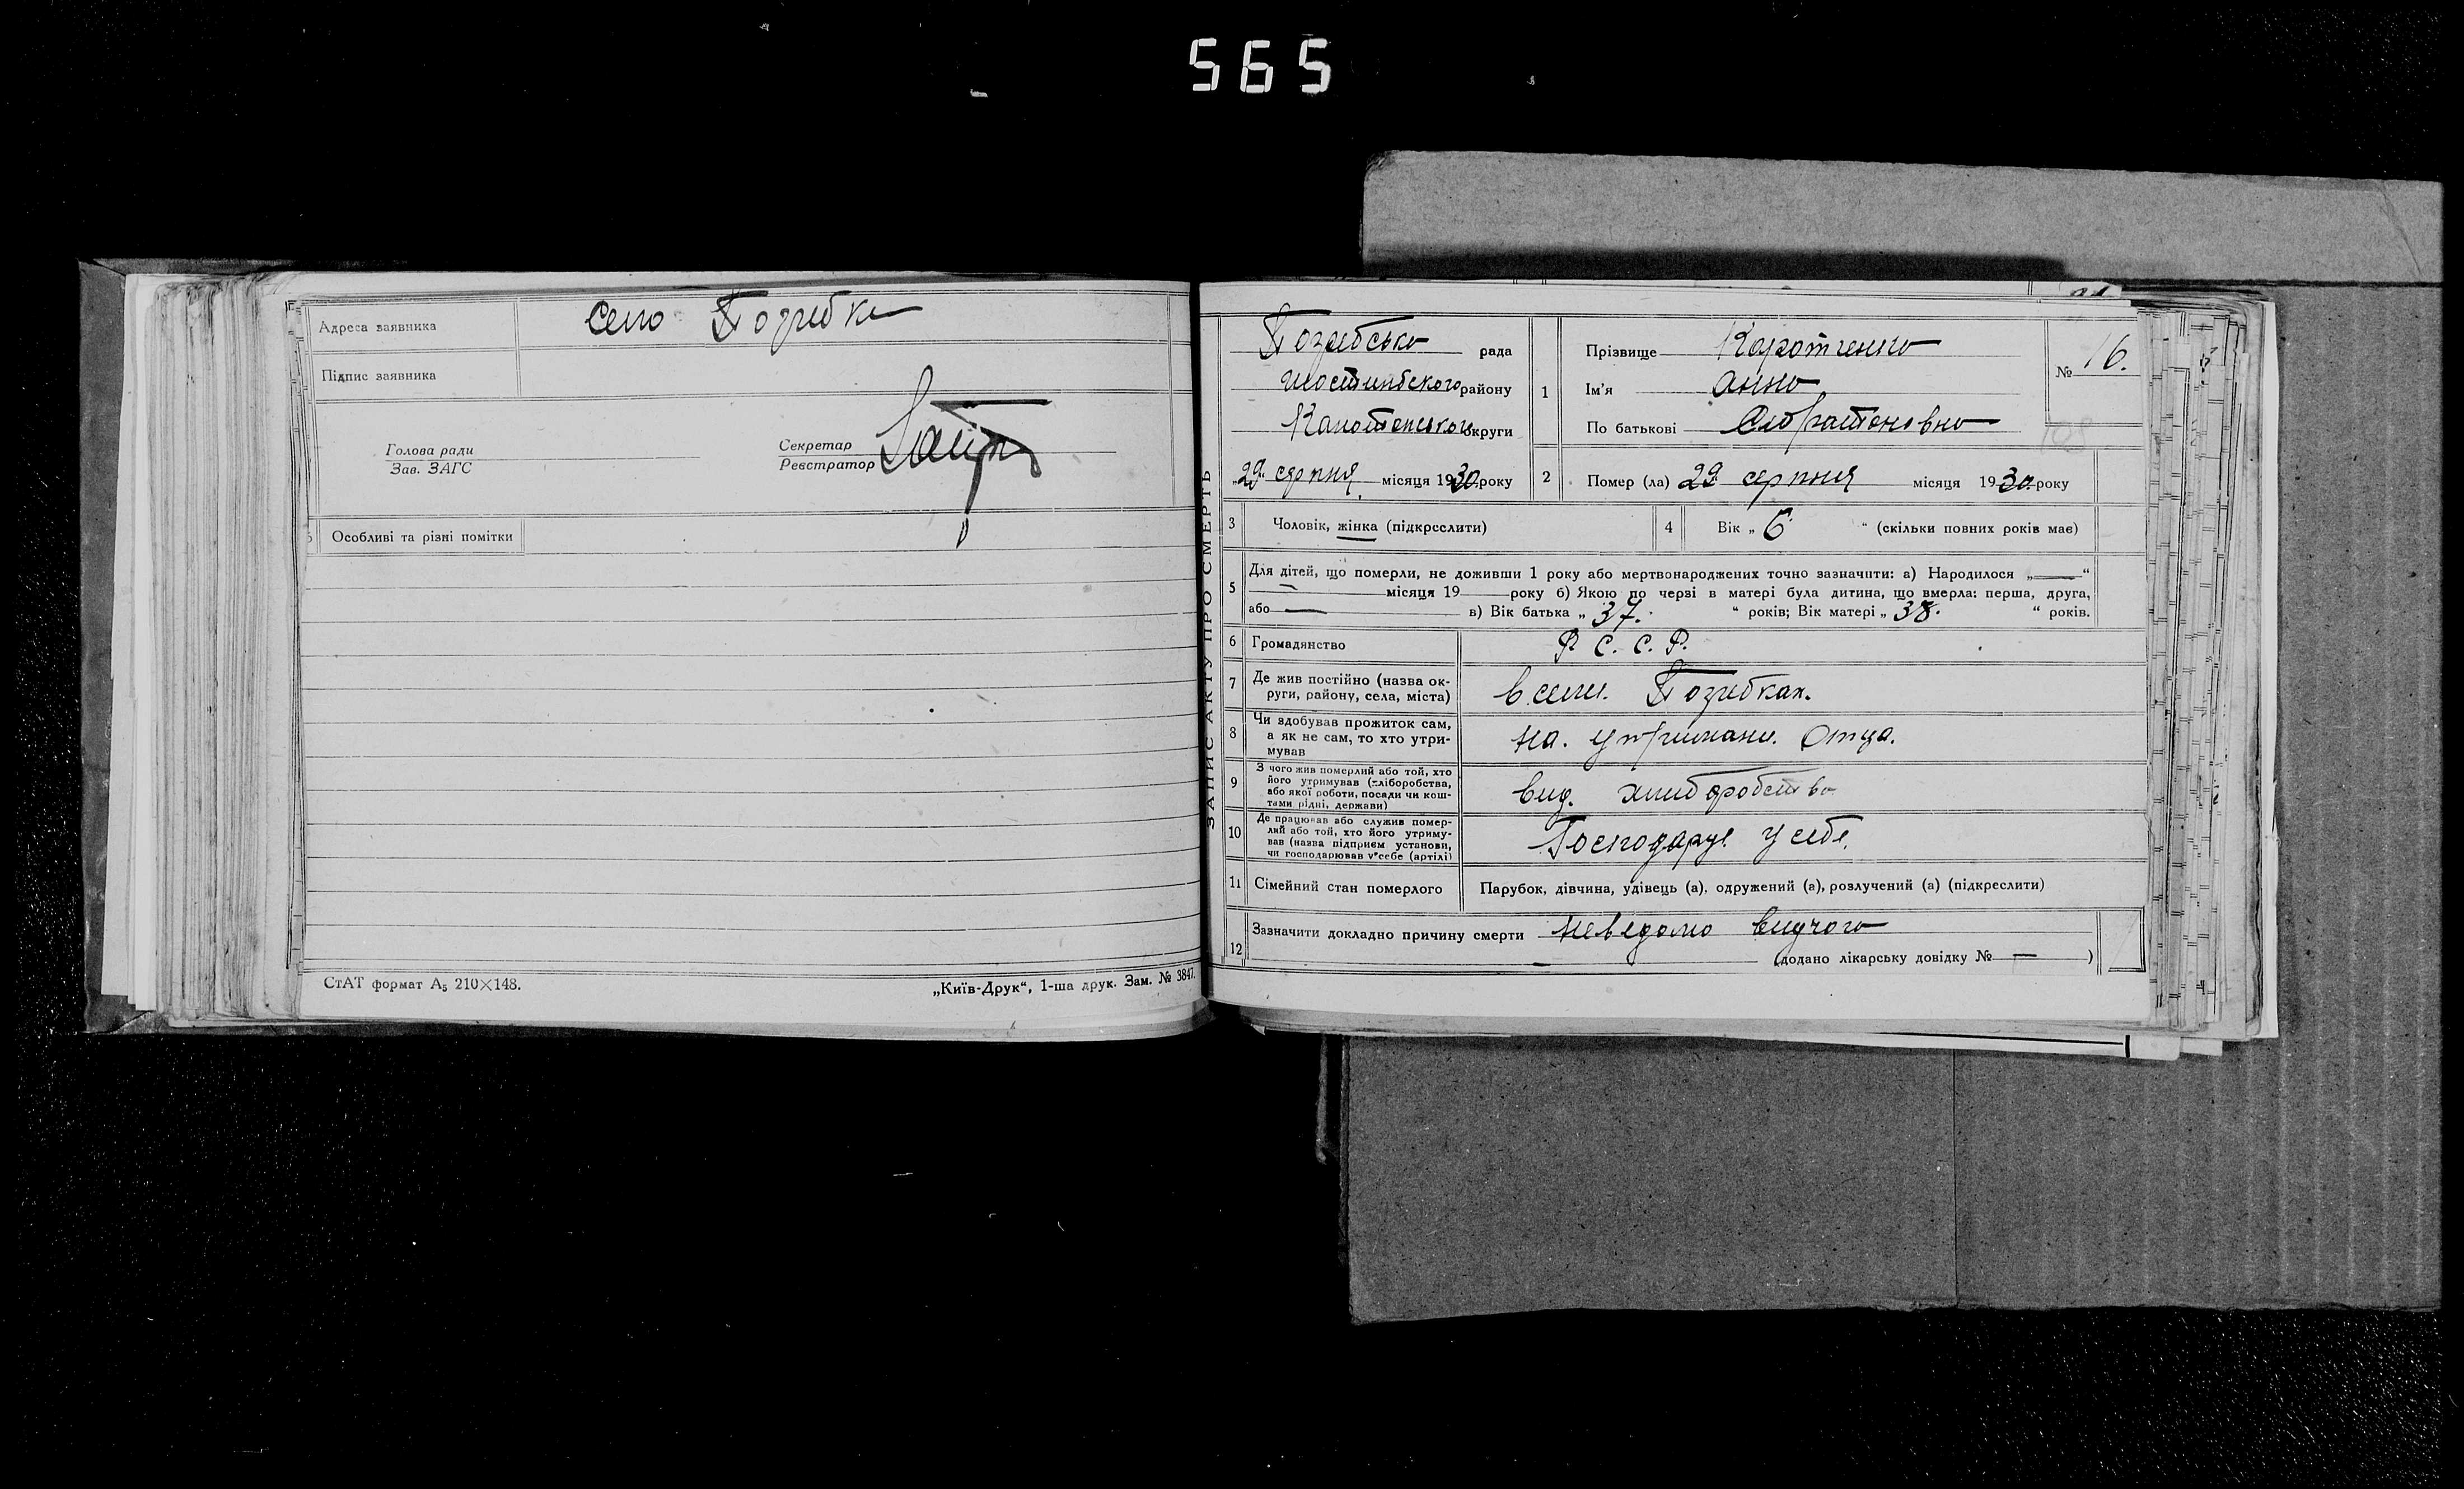 565
Адреса заявника
Село
Підпис заявника
Голова ради
Зав. ЗАГС
Секретар
Реєстратор
Особливі та різні помітки
СтАТ формат А5 210×148.
„Київ-Друк“, 1-ша друк. Зам. № 3847.
ЗАПИС АКТУ ПРО СМЕРТЬ
рада
району
округи
„29“ серпня місяця 1930 року
1
Прізвище Коротченко
Ім'я Анно
По батькові
№ 16.
2 Помер (ла) 29 серпня місяця 1930 року
3 Чоловік, жінка (підкреслити)
4 Вік „ 6 “ (скільки повних років має)
5 Для дітей, що померли, не доживши 1 року або мертвонароджених точно зазначити: а) Народилося „—“
— місяця 19 — року б) Якою по черзі в матері була дитина, що вмерла: перша, друга,
або — в) Вік батька „ 37. “ років; Вік матері „ 38. “ років.
6 Громадянство
Р. С. С. Р.
7 Де жив постійно (назва ок-
руги, району, села, міста)
8 Чи здобував прожиток сам,
а як не сам, то хто утри-
мував
На. утримани. Отца.
9 З чого жив померлий або той, хто
його утримував (хліборобства,
або якої роботи, посади чи кош-
тами рідні, держави)
вид. хлиборобство
10 Де працював або служив помер-
лий або той, хто його утриму-
вав (назва підприєм установи,
чи господарював у себе (артілі)
Господарує у себе.
11 Сімейний стан померлого
Парубок, дівчина, удівець (а), одружений (а), розлучений (а) (підкреслити)
12 Зазначити докладно причину смерти Неведомо видчого
— (додано лікарську довідку № — )